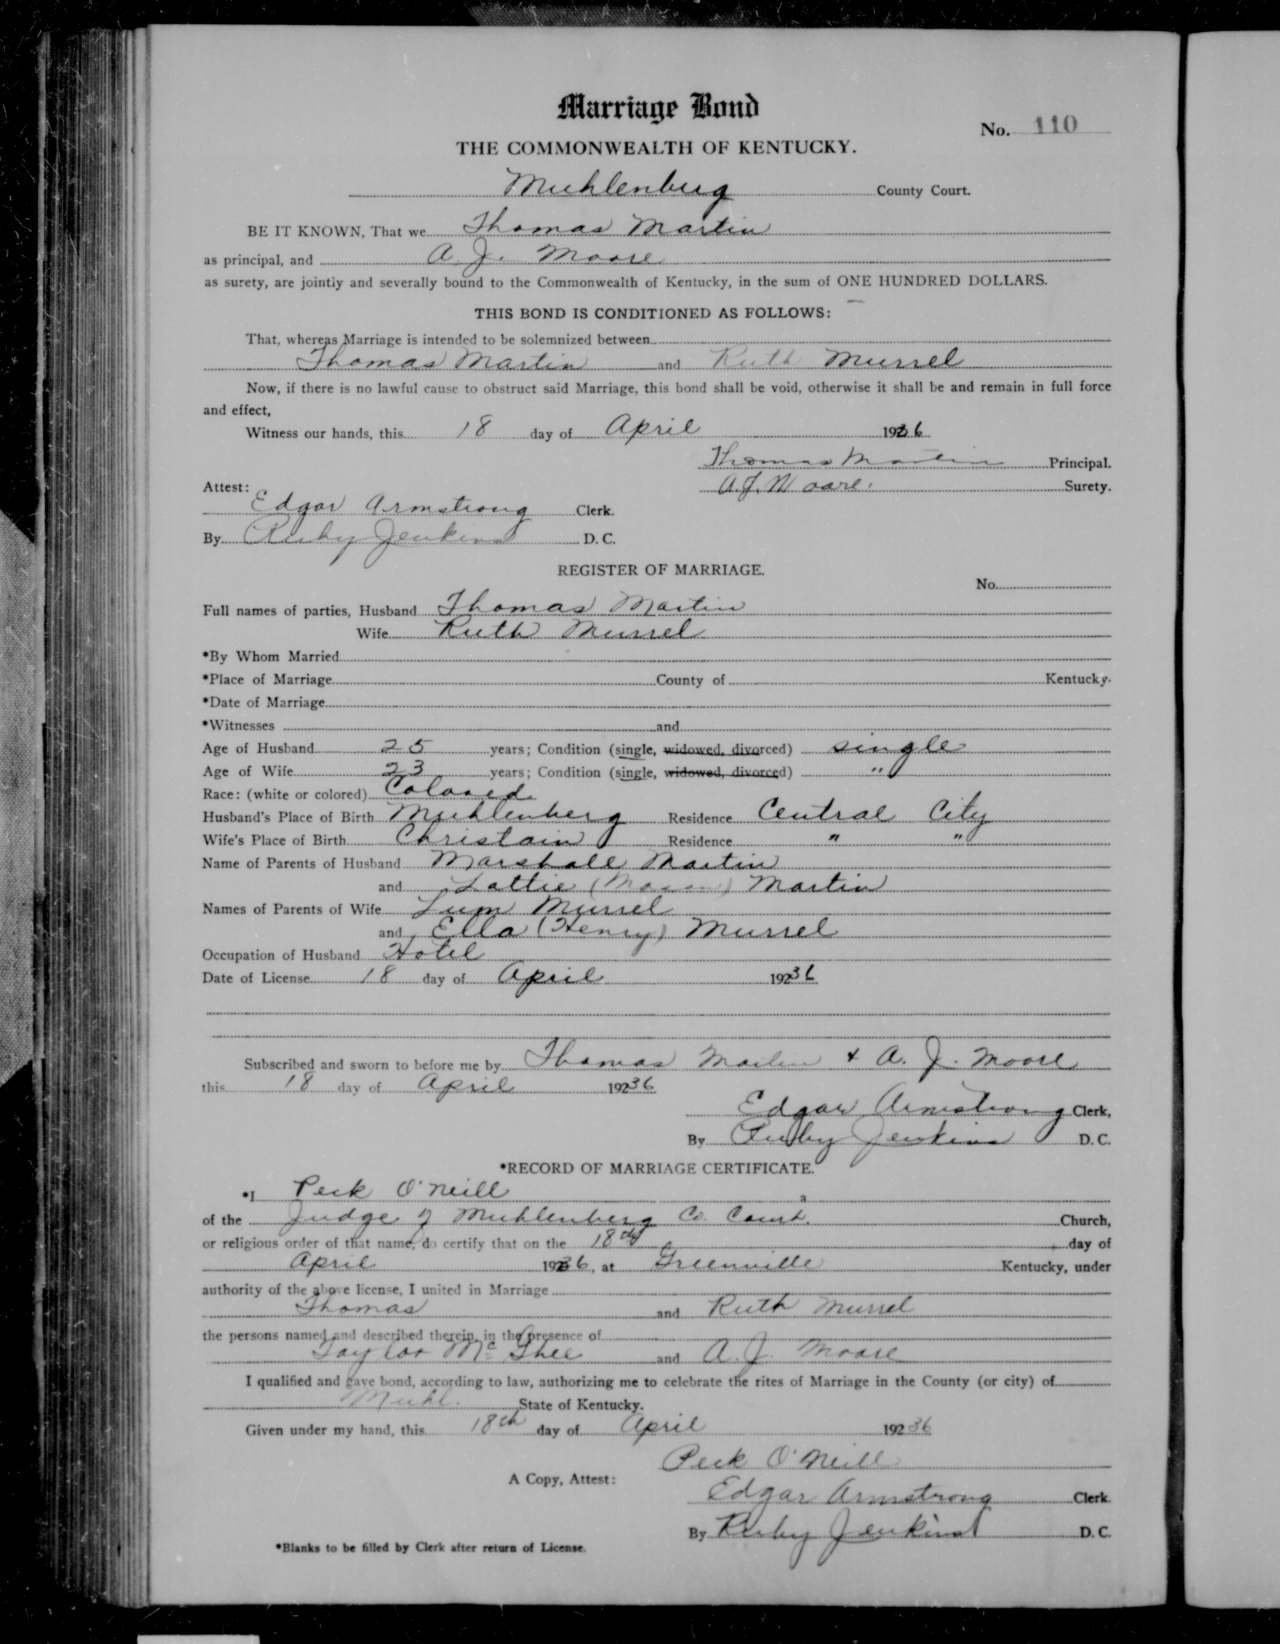 Marriage Bond
No. 110
THE COMMONWEALTH OF KENTUCKY.
Muhlenburg County Court.
BE IT KNOWN, That we Thomas Martin
as principal, and A. J. Moore
as surety, are jointly and severally bound to the Commonwealth of Kentucky, in the sum of ONE HUNDRED DOLLARS.
THIS BOND IS CONDITIONED AS FOLLOWS:
That, whereas Marriage is intended to be solemnized between
Thomas Martin and Ruth Murrel
Now, if there is no lawful cause to obstruct said Marriage, this bond shall be void, otherwise it shall be and remain in full force
and effect,
Witness our hands, this 18 day of April 1936
Thomas Martin Principal.
A. J. Moore. Surety.
Attest:
Edgar Armstrong Clerk.
By Ruby Jenkins D. C.
REGISTER OF MARRIAGE.
No.
Full names of parties, Husband Thomas Martin
Wife Ruth Murrel
*By Whom Married
*Place of Marriage County of Kentucky.
*Date of Marriage
*Witnesses and
Age of Husband 25 years; Condition (single, widowed, divorced) single
Age of Wife 23 years; Condition (single, widowed, divorced) "
Race: (white or colored) Colored
Husband's Place of Birth Muhlenberg Residence Central City
Wife's Place of Birth Christain Residence " "
Name of Parents of Husband Marshall Martin
and Lattie ( ) Martin
Names of Parents of Wife Lum Murrel
and Ella (Henry) Murrel
Occupation of Husband Hotel
Date of License 18 day of April 19236
Subscribed and sworn to before me by Thomas Martin & A. J. Moore
this 18 day of April 19236
Edgar Armstrong Clerk,
By Ruby Jenkins D. C.
*RECORD OF MARRIAGE CERTIFICATE.
*I Peck O'Neill a
of the Judge of Muhlenberg Co. Court. Church,
or religious order of that name, do certify that on the 18th day of
April 1936, at Greenville Kentucky, under
authority of the above license, I united in Marriage
Thomas and Ruth Murrel
the persons named and described therein, in the presence of
Taylor McGhee and A. J. Moore
I qualified and gave bond, according to law, authorizing me to celebrate the rites of Marriage in the County (or city) of
Muhl. State of Kentucky.
Given under my hand, this 18th day of April 19236
Peck O'Neill
A Copy, Attest:
Edgar Armstrong Clerk
By Ruby Jenkins D. C.
*Blanks to be filled by Clerk after return of License.